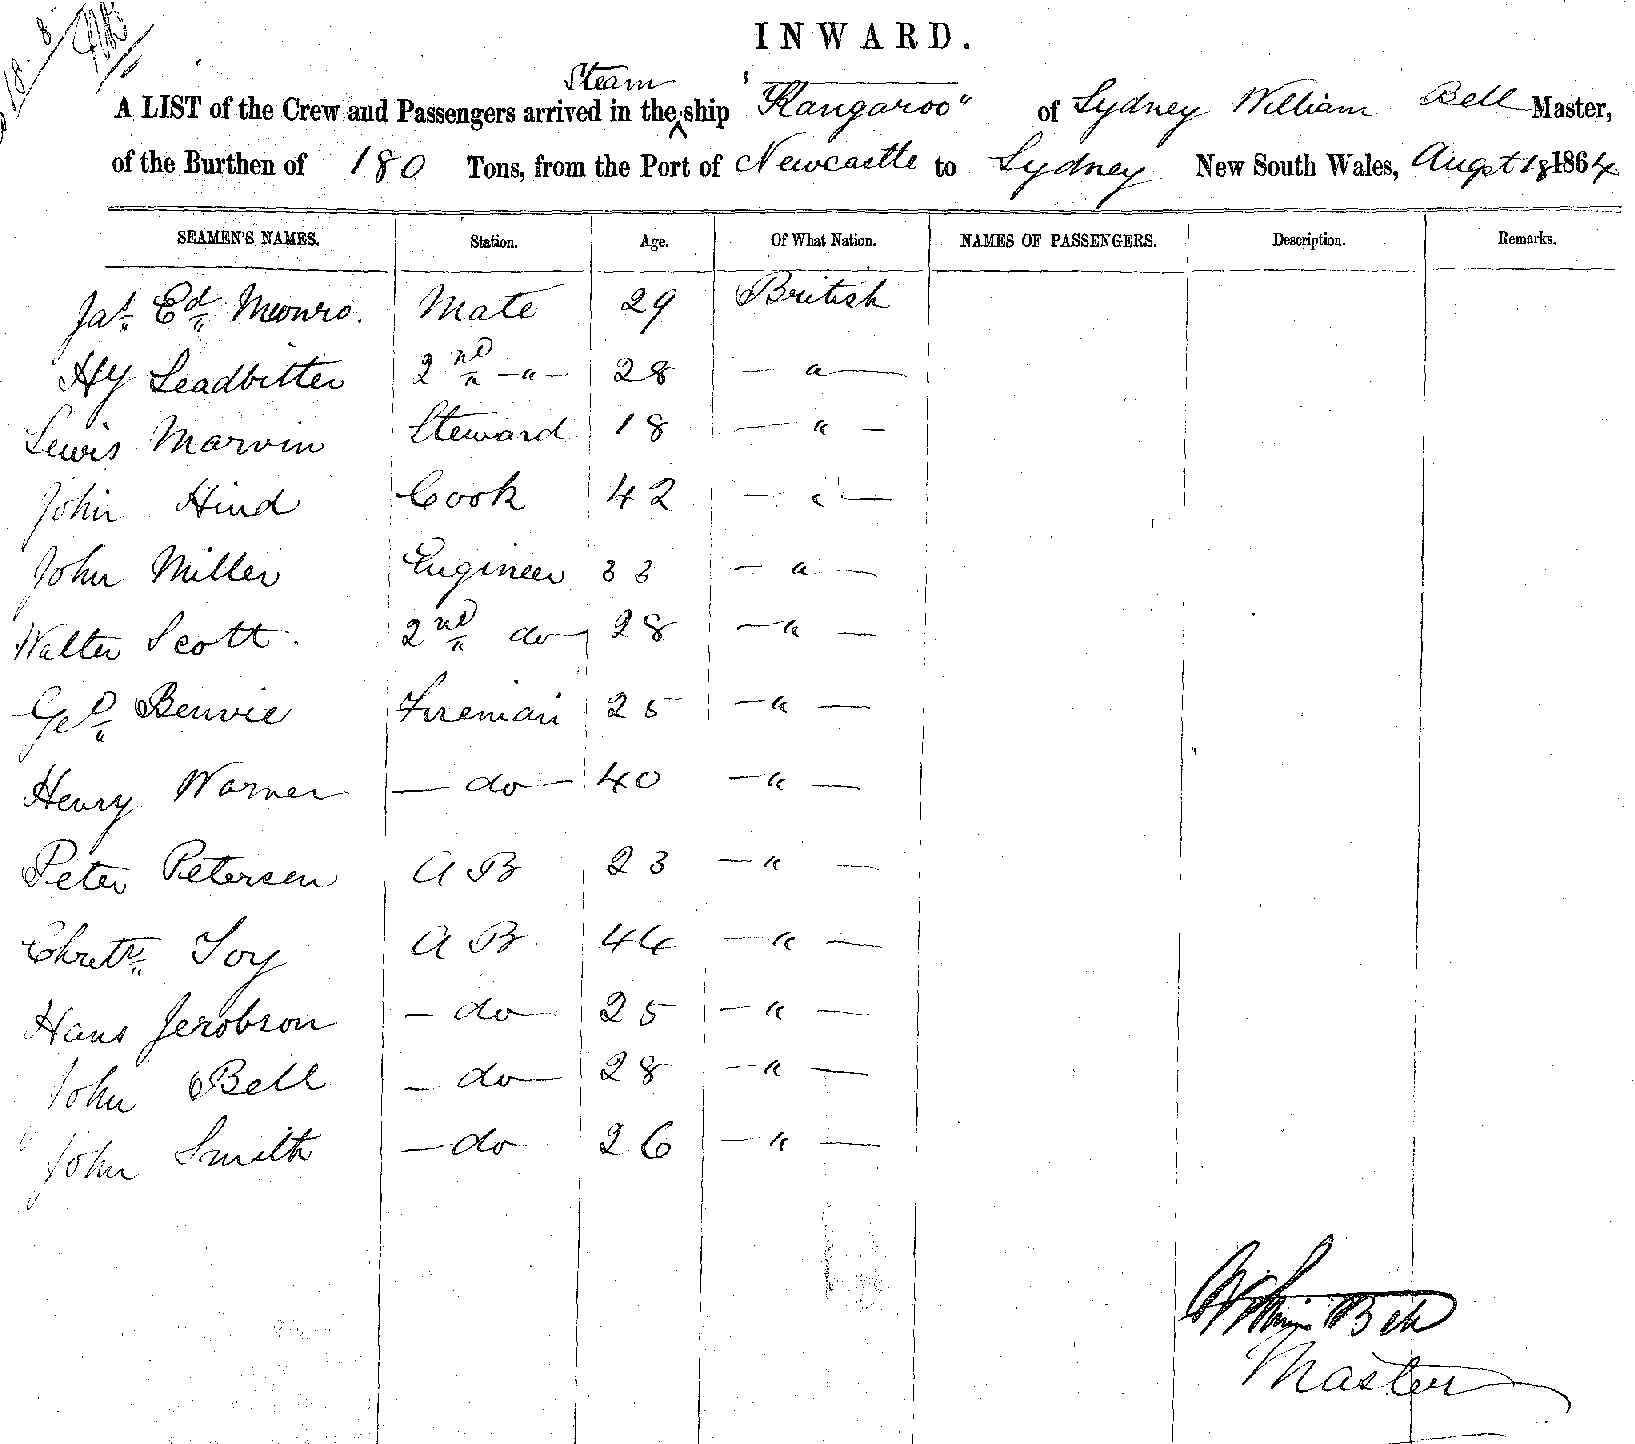 18/8
INWARD.
Steam
A LIST of the Crew and Passengers arrived in the ^ ship "Kangaroo" of Sydney William Bell Master,
of the Burthen of 180 Tons, from the Port of Newcastle to Sydney New South Wales, Augst 18 1864
SEAMEN'S NAMES. Station. Age. Of What Nation. NAMES OF PASSENGERS. Description. Remarks.
Jas. Ed. Munro. Mate 29 British
Hy Leadbitter 2nd " - " - 28 - " -
Lewis Marvin Steward 18 - " -
John Hind Cook 42 - " -
John Miller Engineer 33 - " -
Walter Scott. 2nd do 28 - " -
Geo. Benvie Fireman 25 - " -
Henry Warner - do - 40 - " -
Peter Petersen AB 23 - " -
Chrstr. Toy AB 44 - " -
Hans Jerobson - do 25 - " -
John Bell - do - 28 - " -
John Smith - do 26 - " -
William Bell
Master